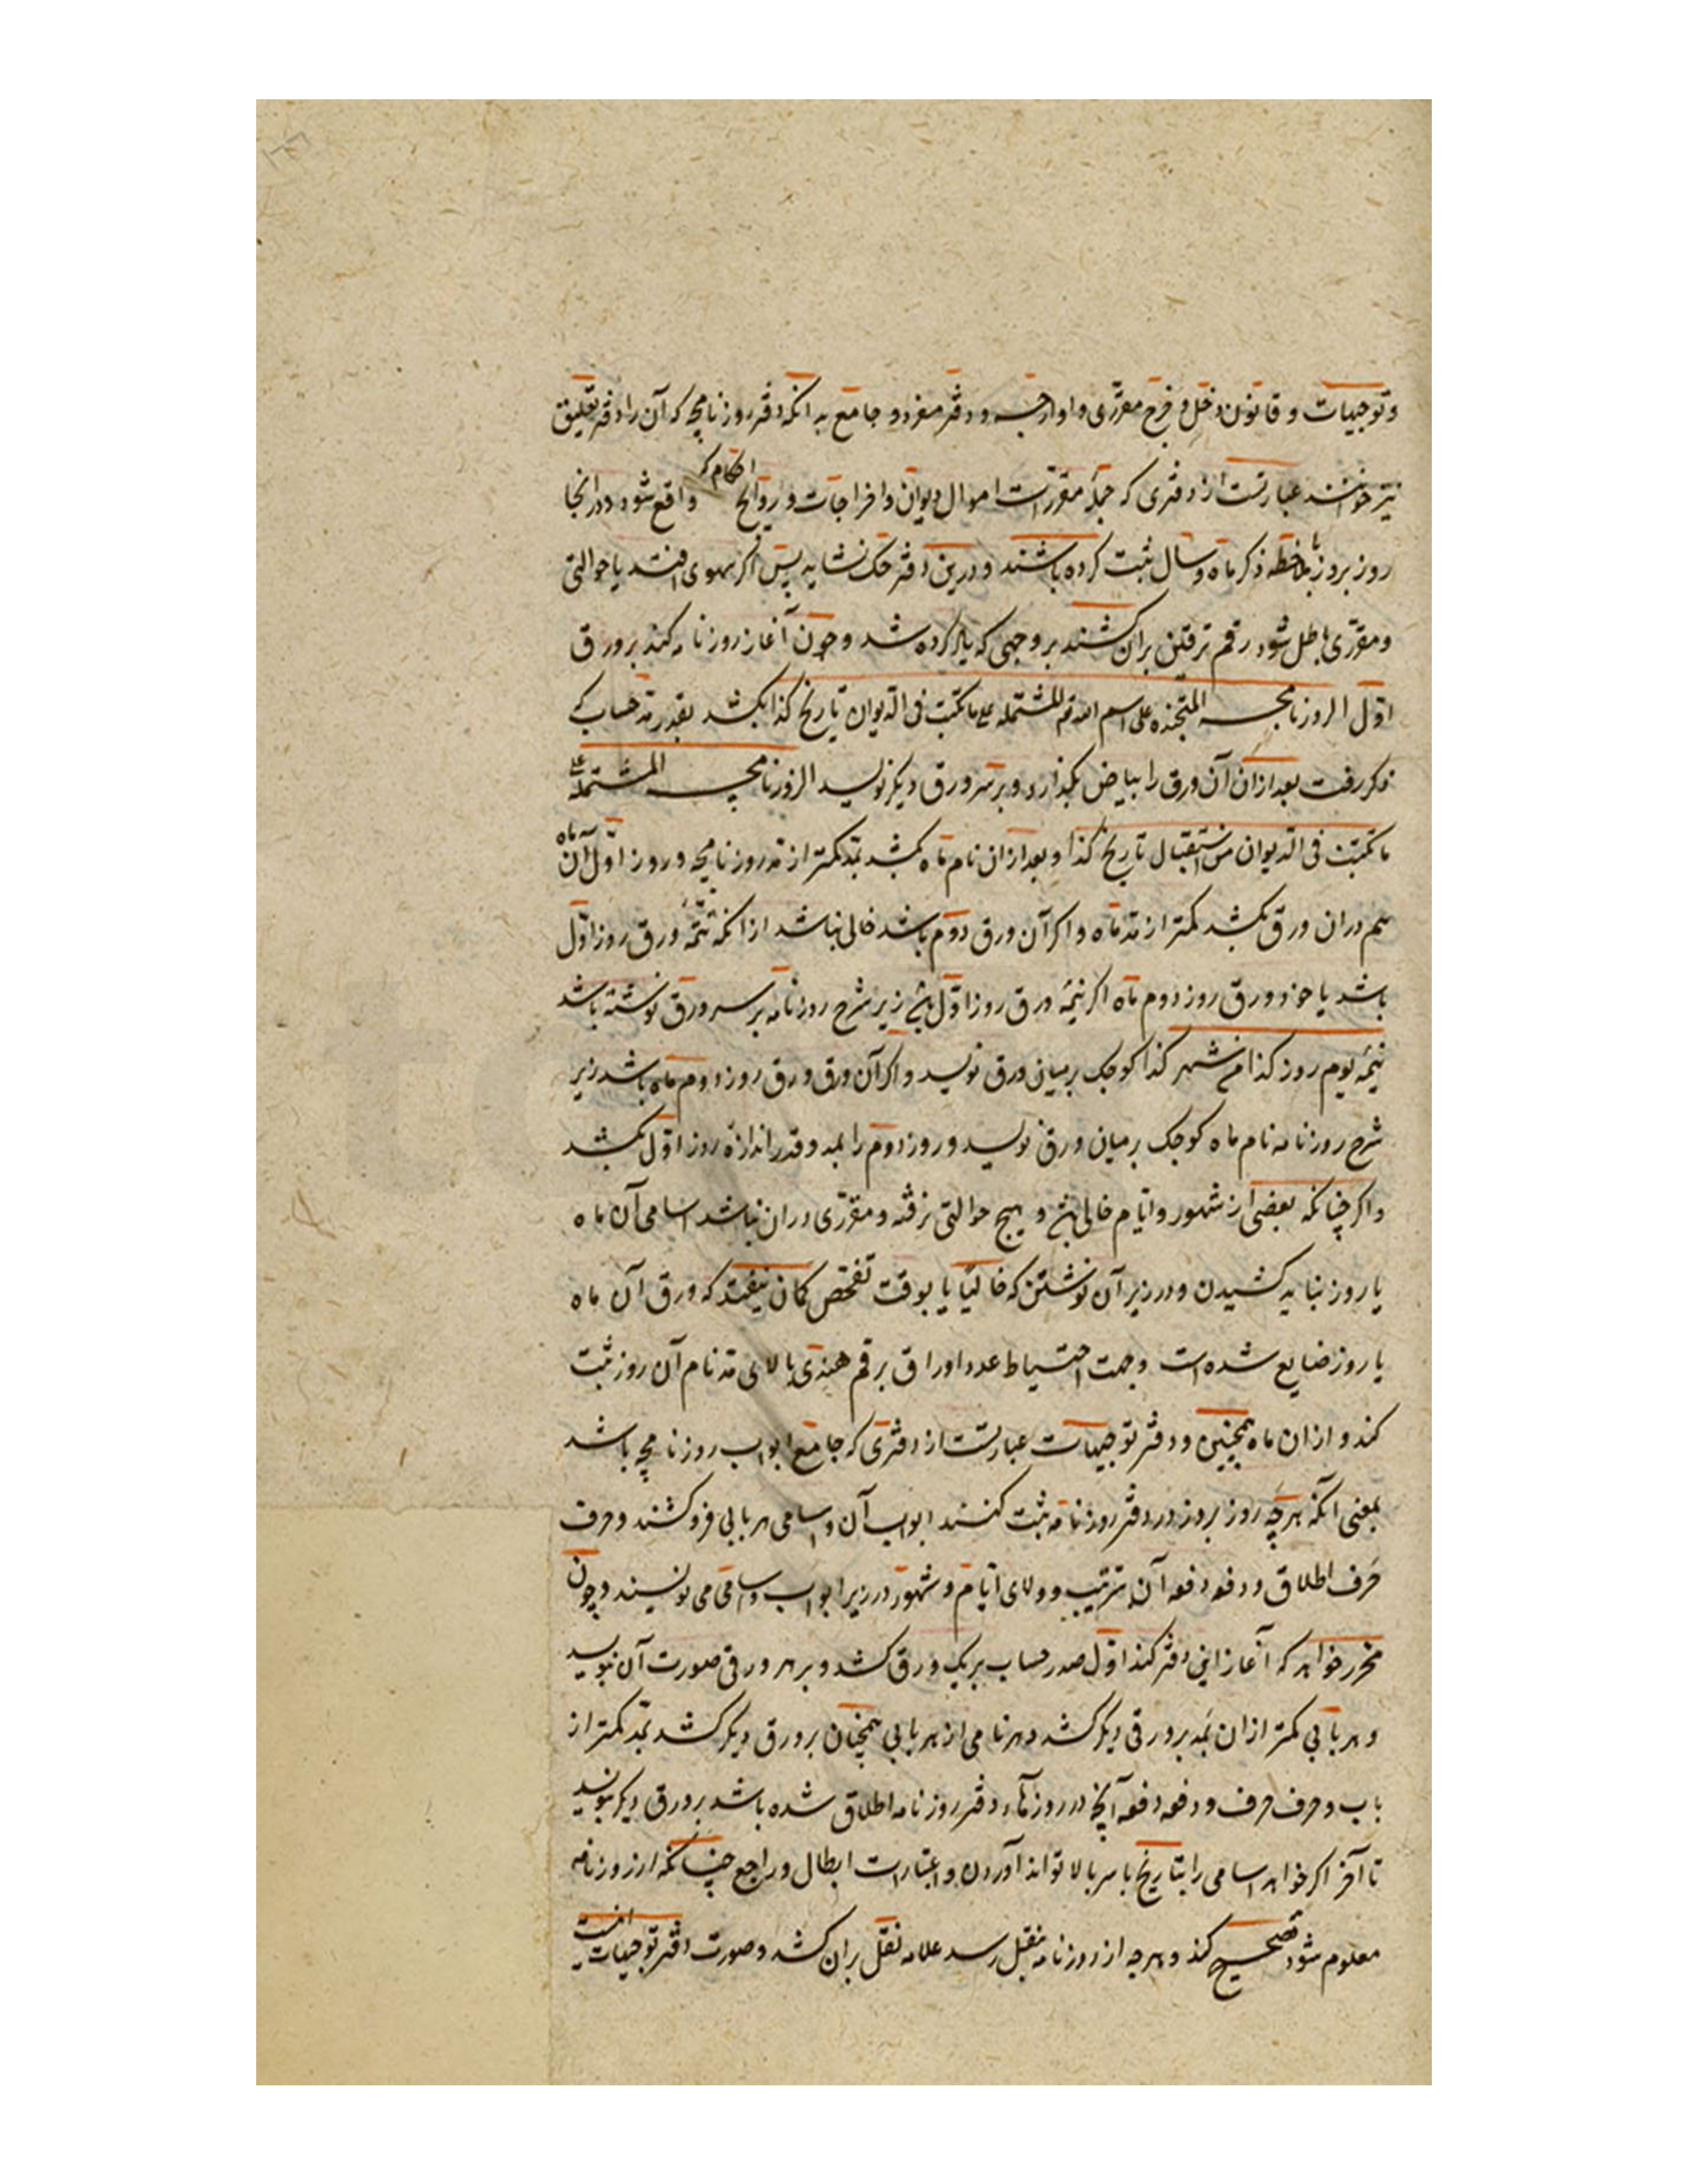 و توجیهات و قانون دخل و خرج مقرری و اوارجه و دفتر مفرد و جامع به انکه دفتر روزنامچه که آن را دفتر تعلیق
نیز خوانند عبارتست از دفتری که جمله مقررات اموال دیوان و اخراجات و روایج احکام که واقع شود در انجا
روز بروز با ملاحظه ذکر ماه و سال ثبت کرده باشند و درین دفتر حک نشاید پس اکر سهوی افتد یا حوالتی
و مقرری باطل شود رقم ترقین بران کشند بر وجهی که یاد کرده شد و چون آغاز روزنامه کند بر ورق
اول الروزنامجه المتخذه علی اسم الله تع المشتمله علی ما کتبت فی الدیوان تاریخ کذا بکشد بقدر مد حساب که
ذکر رفت بعد از ان آن ورق را بیاض بکذارد و بر سر ورق دیکر نویسد الروزنامچه المشتمله علی
ما کتبت فی الدیوان من استقبال تاریخ کذا و بعد از ان نام ماه بکشد بمد کمتر از مد روزنامچه و روز اول آن ماه
هم دران ورق بکشد کمتر از مد ماه و اکر آن ورق دوم باشد خالی نباشد از انکه تتمه ورق روز اول
باشد یا خود ورق روز دوم ماه اکر تتمه ورق روز اول باشد زیر شرح روزنامه بر سر ورق نوشته باشد
تتمه یوم روز کذا من شهر کذا کوچک بر میان ورق نویسد و اکر آن ورق ورق روز دوم ماه باشد زیر
شرح روزنامه نام ماه کوچک بر میان ورق نویسد و روز دوم را بمد و قدر اندازه روز اول بکشد
و اکر چنانکه بعضی از شهور و ایام خالی باشد و هیچ حوالتی نرفته و مقرری دران نباشد اسامی آن ماه
یا روز نباید کشیدن و در زیر آن نوشتن که خالیا یا بوقت تفحص کمان نیفتد که ورق آن ماه
یا روز ضایع شده است و جهت احتیاط عدد اوراق برقم هندی بالای مد نام آن روز ثبت
کند و از ان ماه همچنین و دفتر توجیهات عبارتست از دفتری که جامع ابواب روزنامچه باشد
بمعنی انکه هرچه روز بروز در دفتر روزنامه ثبت کنند ابواب آن و اسامی هر بابی فروکشند و حرف
حرف اطلاق و دفعه دفعه آن بترتیب و ولای ایام و شهور در زیر ابواب و اسامی می نویسند و چون
محرر خواهد که آغاز این دفتر کند اول صدر حساب بر یک ورق کشد و بر هر ورقی صورت آن بنویسد
و هر بابی کمتر از ان بمد بر ورقی دیکر کشد و هر نامی از هر بابی همچنان بر ورق دیکر کشد بمد کمتر از
باب و حرف حرف و دفعه دفعه آنچه در روزها در دفتر روزنامه اطلاق شده باشد بر ورق دیکر بنویسد
تا آخر اکر خواهد اسامی را بتاریخ با سر بالا تواند آوردن و اعتبارات ابطال و راجع چنانکه از روزنامه
معلوم شود تصحیح کند و هرچه از روزنامه بنقل رسد علامه نقل بران کشد و صورت دفتر توجیهات اینست